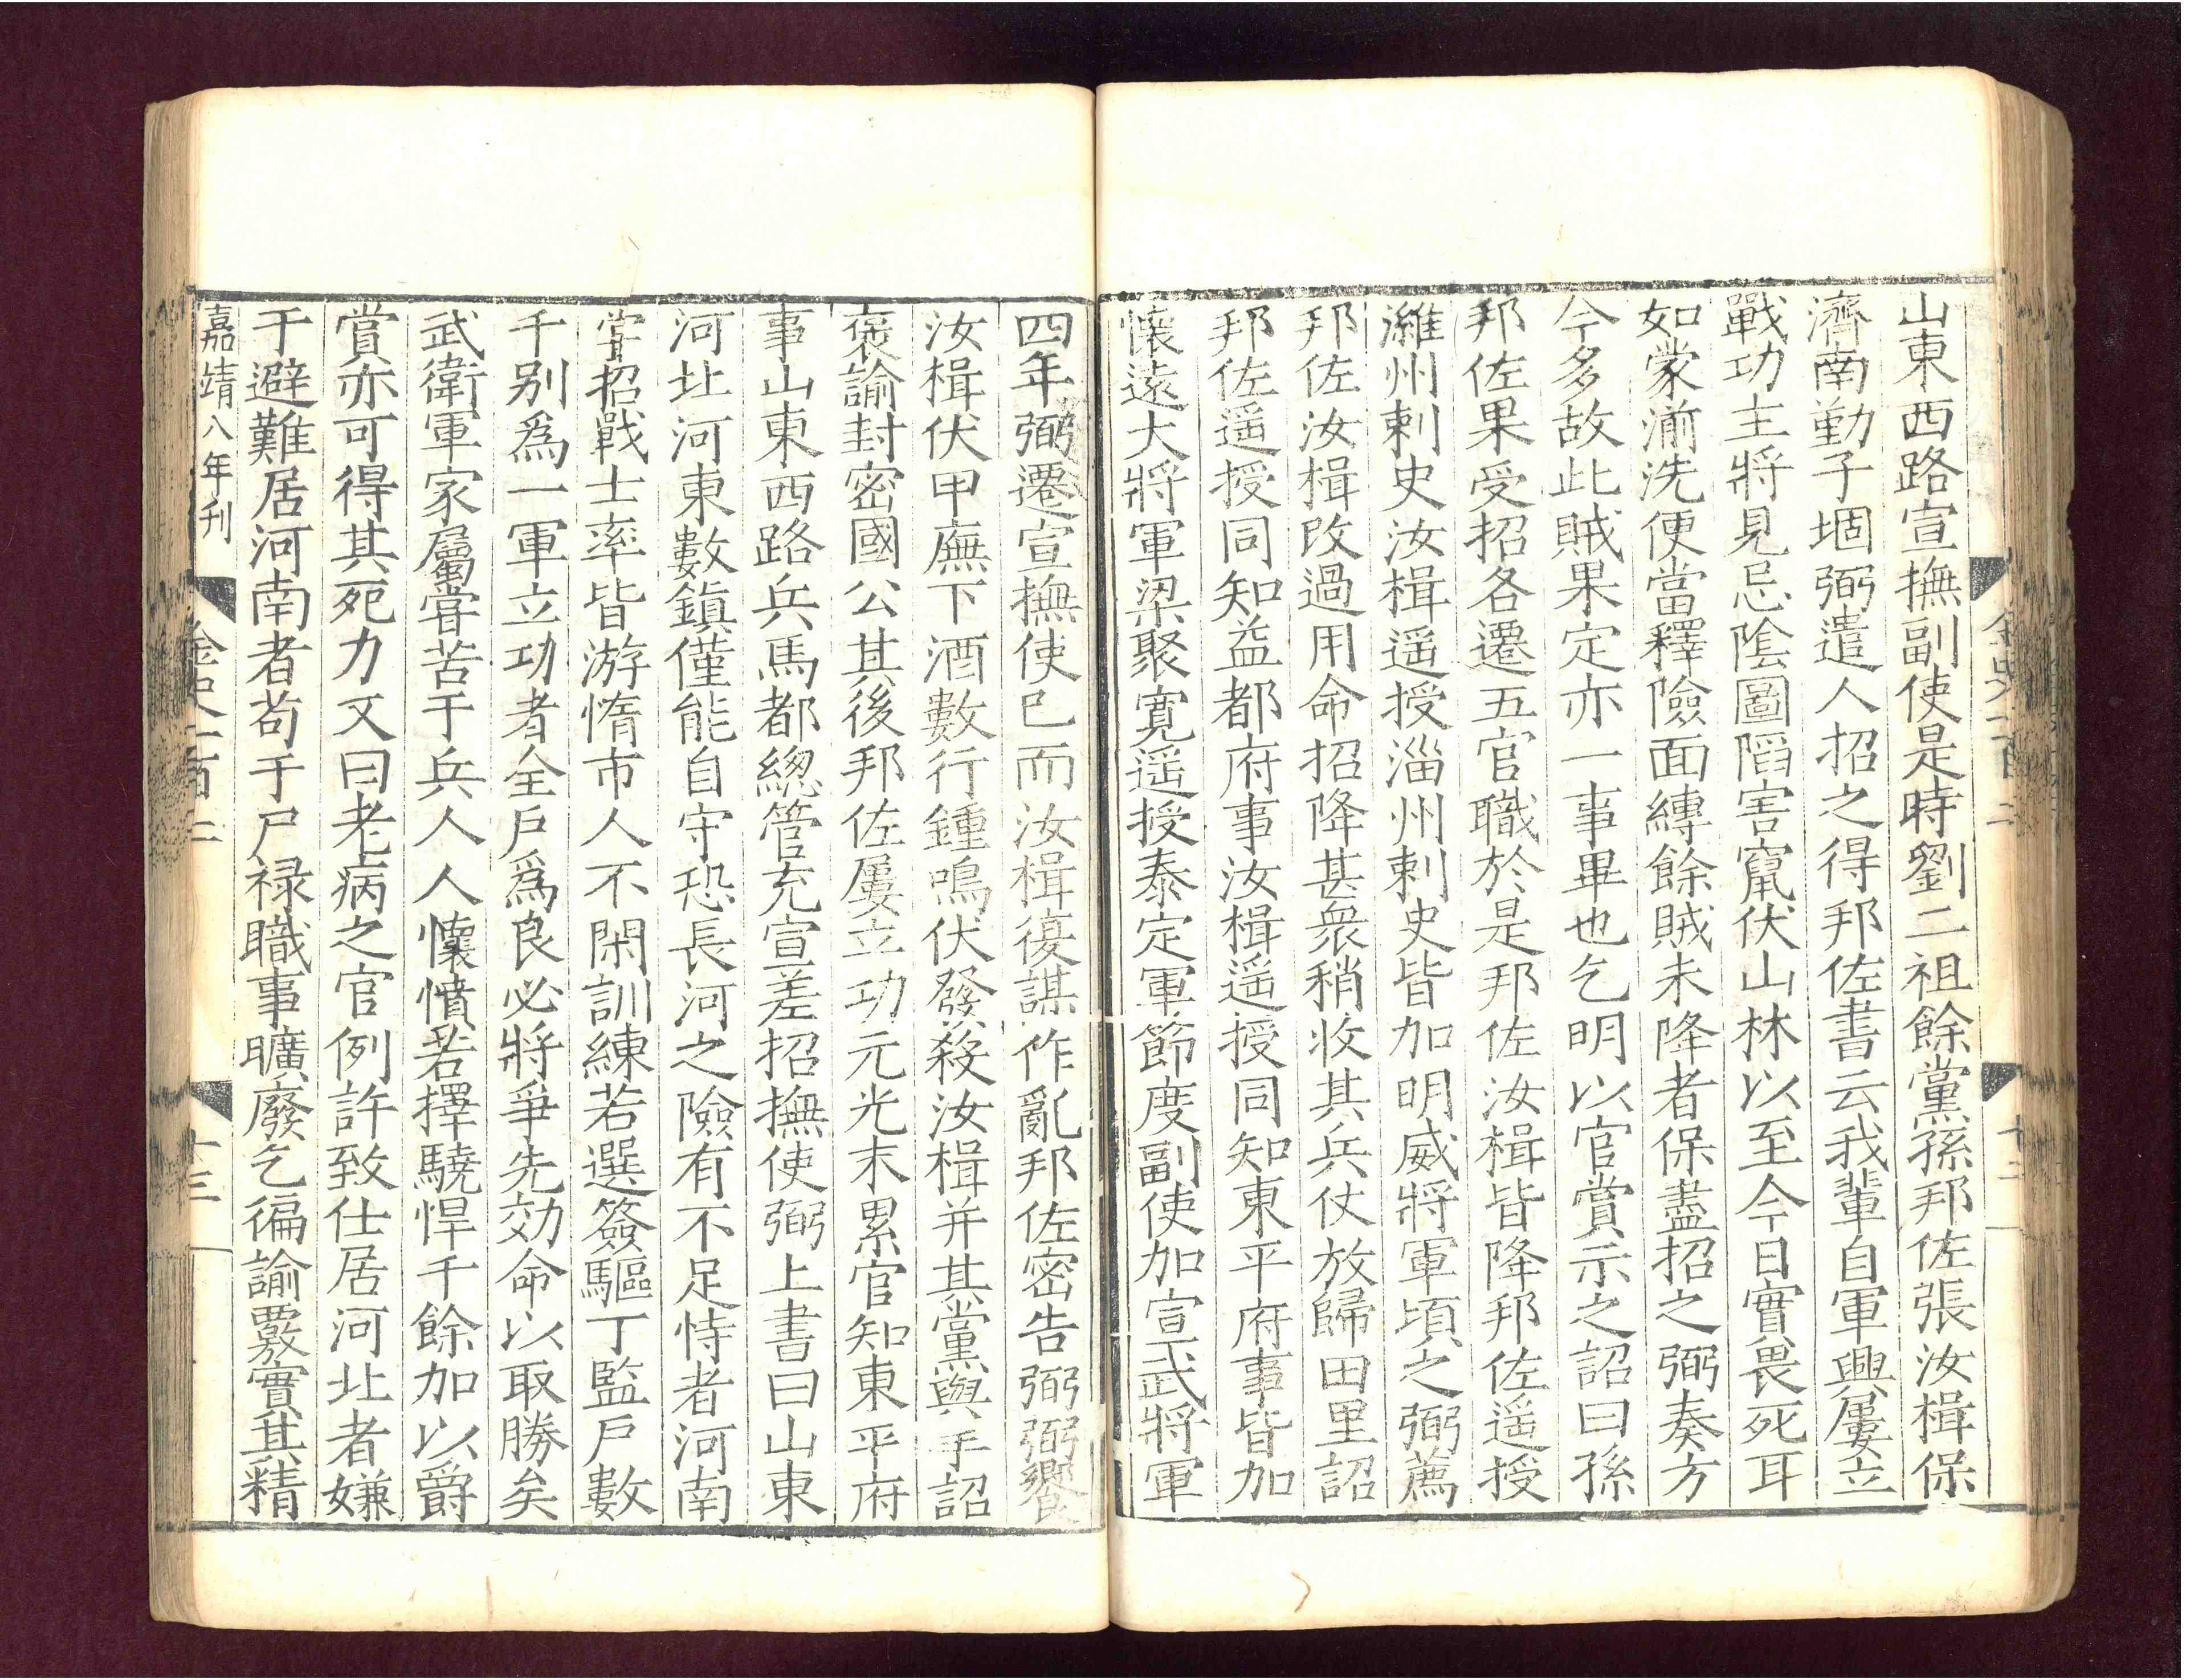 山東西路宣撫副使是時劉二祖餘黨孫邦佐張汝楫保
濟南勤子堌弼遣人招之得邦佐書云我輩自軍興屢立
戰功主將見忌陰圖䧟害竄伏山林以至今日實畏死耳
如蒙湔洗便當釋險面縛餘賊未降者保盡招之弼奏方
今多故此賊果定亦一事畢也乞明以官賞示之詔曰孫
邦佐果受招各遷五官職於是邦佐汝楫皆降邦佐遥授
濰州刺史汝楫遥授淄州刺史皆加明威將軍頃之弼薦
邦佐汝楫改過用命招降甚衆稍收其兵仗放歸田里詔
邦佐遥授同知益都府事汝楫遥授同知東平府事皆加
懷遠大將軍梁聚寬遥授泰定軍節度副使加宣武將軍
金史一百二
十二
四年弼遷宣撫使已而汝楫復謀作亂邦佐密告弼弼饗
汝楫伏甲廡下酒數行鍾鳴伏發殺汝楫并其黨與手詔
褒諭封密國公其後邦佐屢立功元光末累官知東平府
事山東西路兵馬都總管充宣差招撫使弼上書曰山東
河北河東數鎮僅能自守恐長河之險有不足恃者河南
甞招戰士率皆游惰市人不閑訓練若選簽驅丁監戶數
千别爲一軍立功者全戶爲良必將爭先効命以取勝矣
武衛軍家屬甞苦于兵人人懷憤若擇驍悍千餘加以爵
賞亦可得其死力又曰老病之官例許致仕居河北者嫌
于避難居河南者苟于尸禄職事曠廢乞徧諭覈實其精
嘉靖八年刊
金史一百二
十三